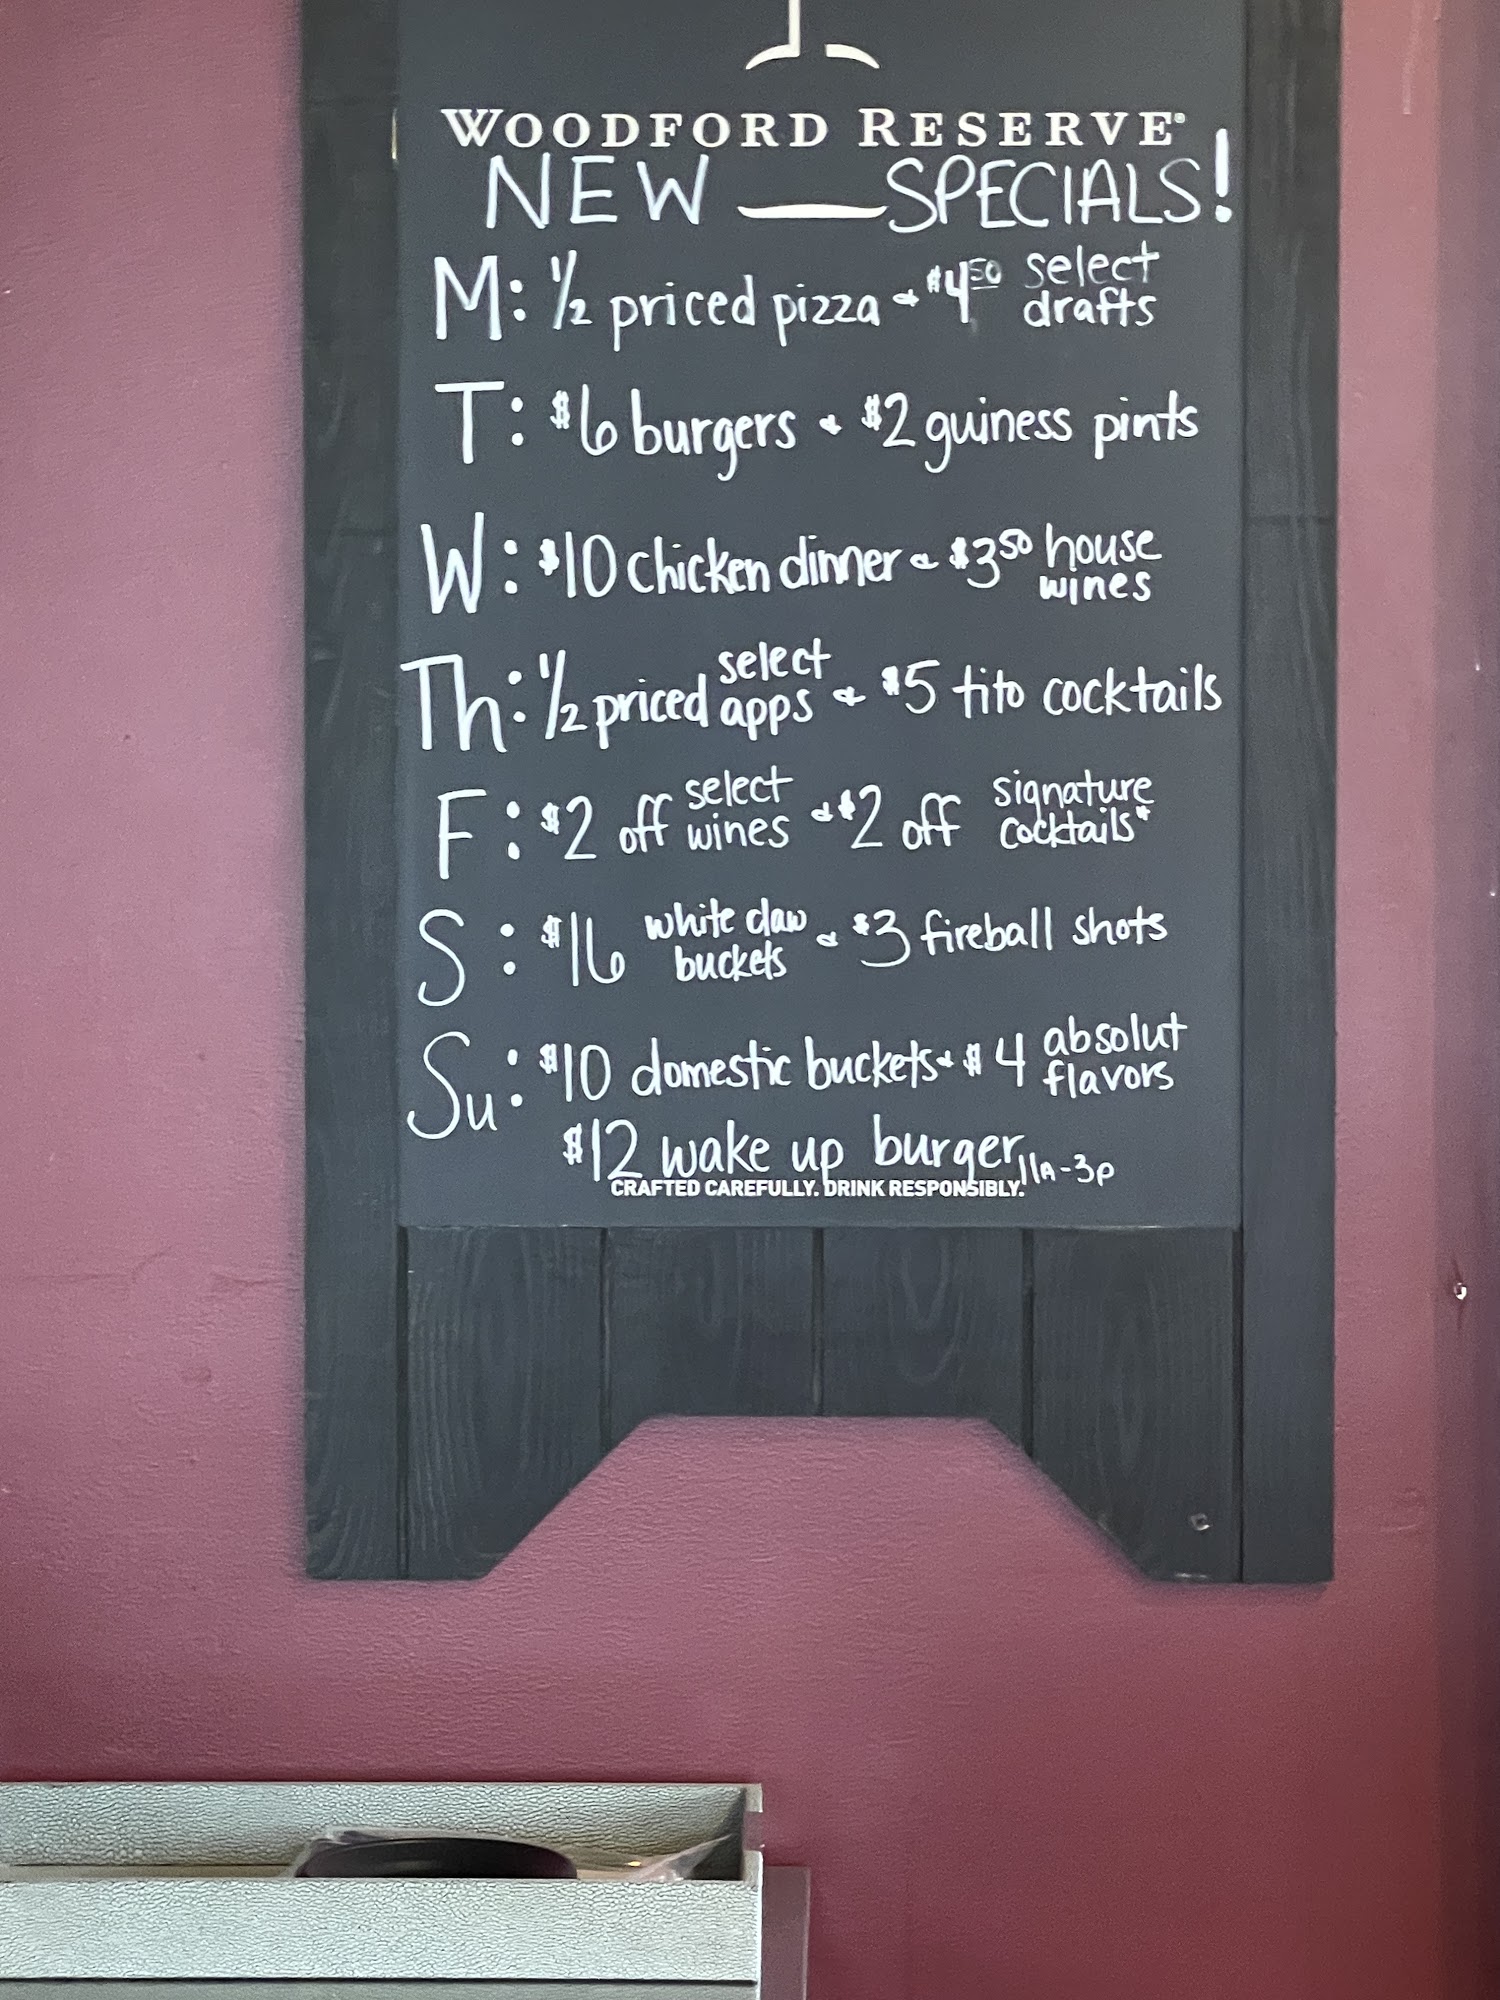 WOODFORD RESERVE®
NEW — SPECIALS!
M: ½ priced pizza & $4.50 select drafts
T: $6 burgers & $2 guiness pints
W: $10 chicken dinner & $3.50 house wines
Th: ½ priced select apps & $5 tito cocktails
F: $2 off select wines & $2 off signature cocktails*
S: $16 white claw buckets & $3 fireball shots
Su: $10 domestic buckets & $4 absolut flavors
$12 wake up burger 11A-3p
CRAFTED CAREFULLY. DRINK RESPONSIBLY.